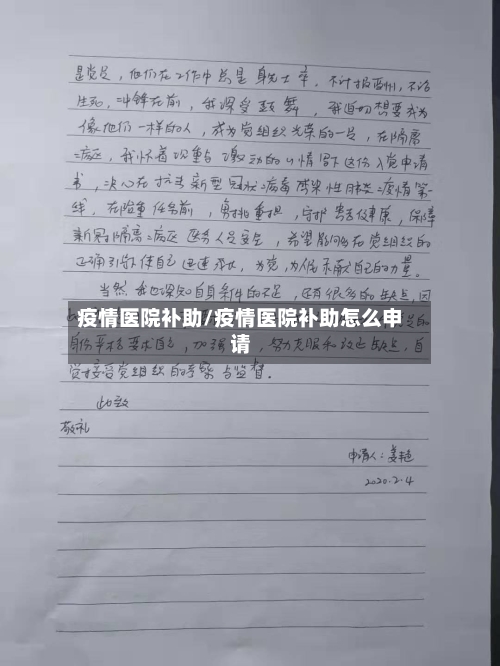 是党员，他们在工作中总是身先士卒，不计报酬，不论
生死，冲锋在前，我深受鼓舞，我迫切想要成为
像他们一样的人，成为党组织光荣的一员，在隔离
病区，我怀着以重与激动的心情写下这份入党申请
书，决心在抗击新型冠状病毒感染性肺炎疫情第一
线，在险重任务前，勇挑重担，守护患者健康，保障
新冠隔离病区医务人员安全，希望能在党组织的
正确引导使自己迅速成长，为党，为人民奉献自己的力量。
当然，我也深知自身条件的不足，还有很多的缺点，因
疫情医院补助/疫情医院补助怎么申
请
自 要求自己，加强 努力克服和改正缺点，自
觉接受党组织的考察与监督。
此致
敬礼
申请人：姜艳
2020.2.4